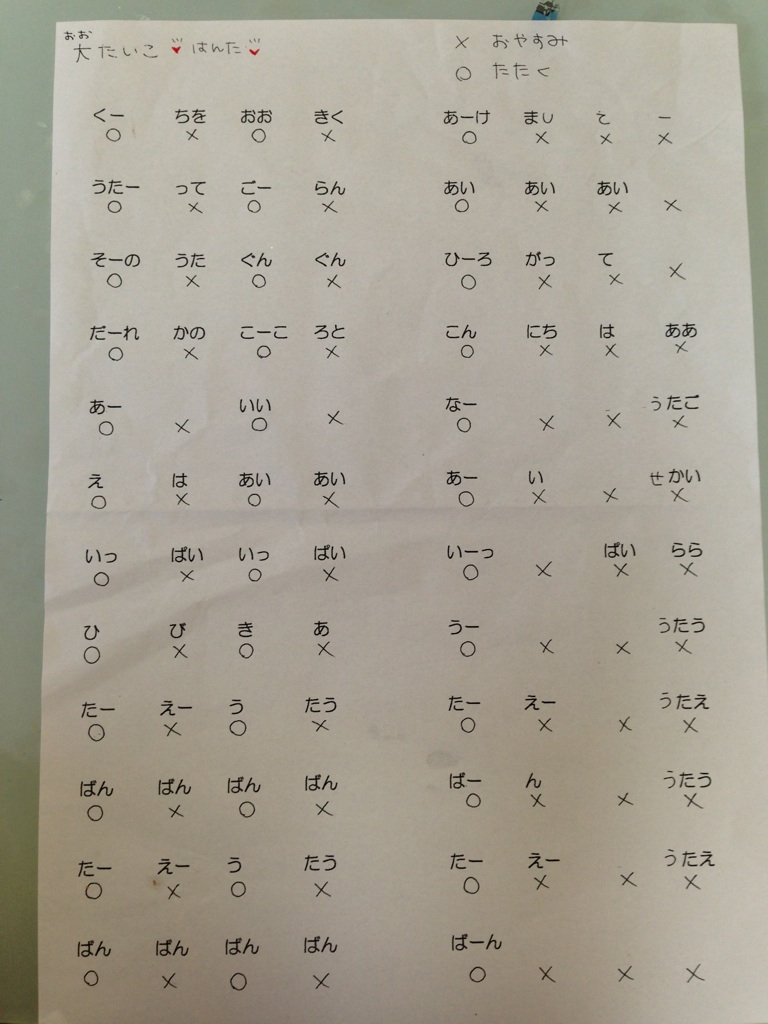 おお
大たいこ はんた
× おやすみ
○ たたく
くー ちを おお きく
○ × ○ ×
うたー って ごー らん
○ × ○ ×
そーの うた ぐん ぐん
○ × ○ ×
だーれ かの こーこ ろと
○ × ○ ×
あー いい
○ × ○ ×
え は あい あい
○ × ○ ×
いっ ぱい いっ ぱい
○ × ○ ×
ひ び き あ
○ × ○ ×
たー えー う たう
○ × ○ ×
ぱん ぱん ぱん ぱん
○ × ○ ×
たー えー う たう
○ × ○ ×
ぱん ぱん ぱん ぱん
○ × ○ ×
あーけ まし て ー
○ × × ×
あい あい あい
○ × × ×
ひーろ がっ て
○ × × ×
こん にち は ああ
○ × × ×
なー うたご
○ × × ×
あー い せかい
○ × × ×
いーっ ぱい らら
○ × × ×
うー うたう
○ × × ×
たー えー うたえ
○ × × ×
ぱー ん うたう
○ × × ×
たー えー うたえ
○ × × ×
ぱーん
○ × × ×